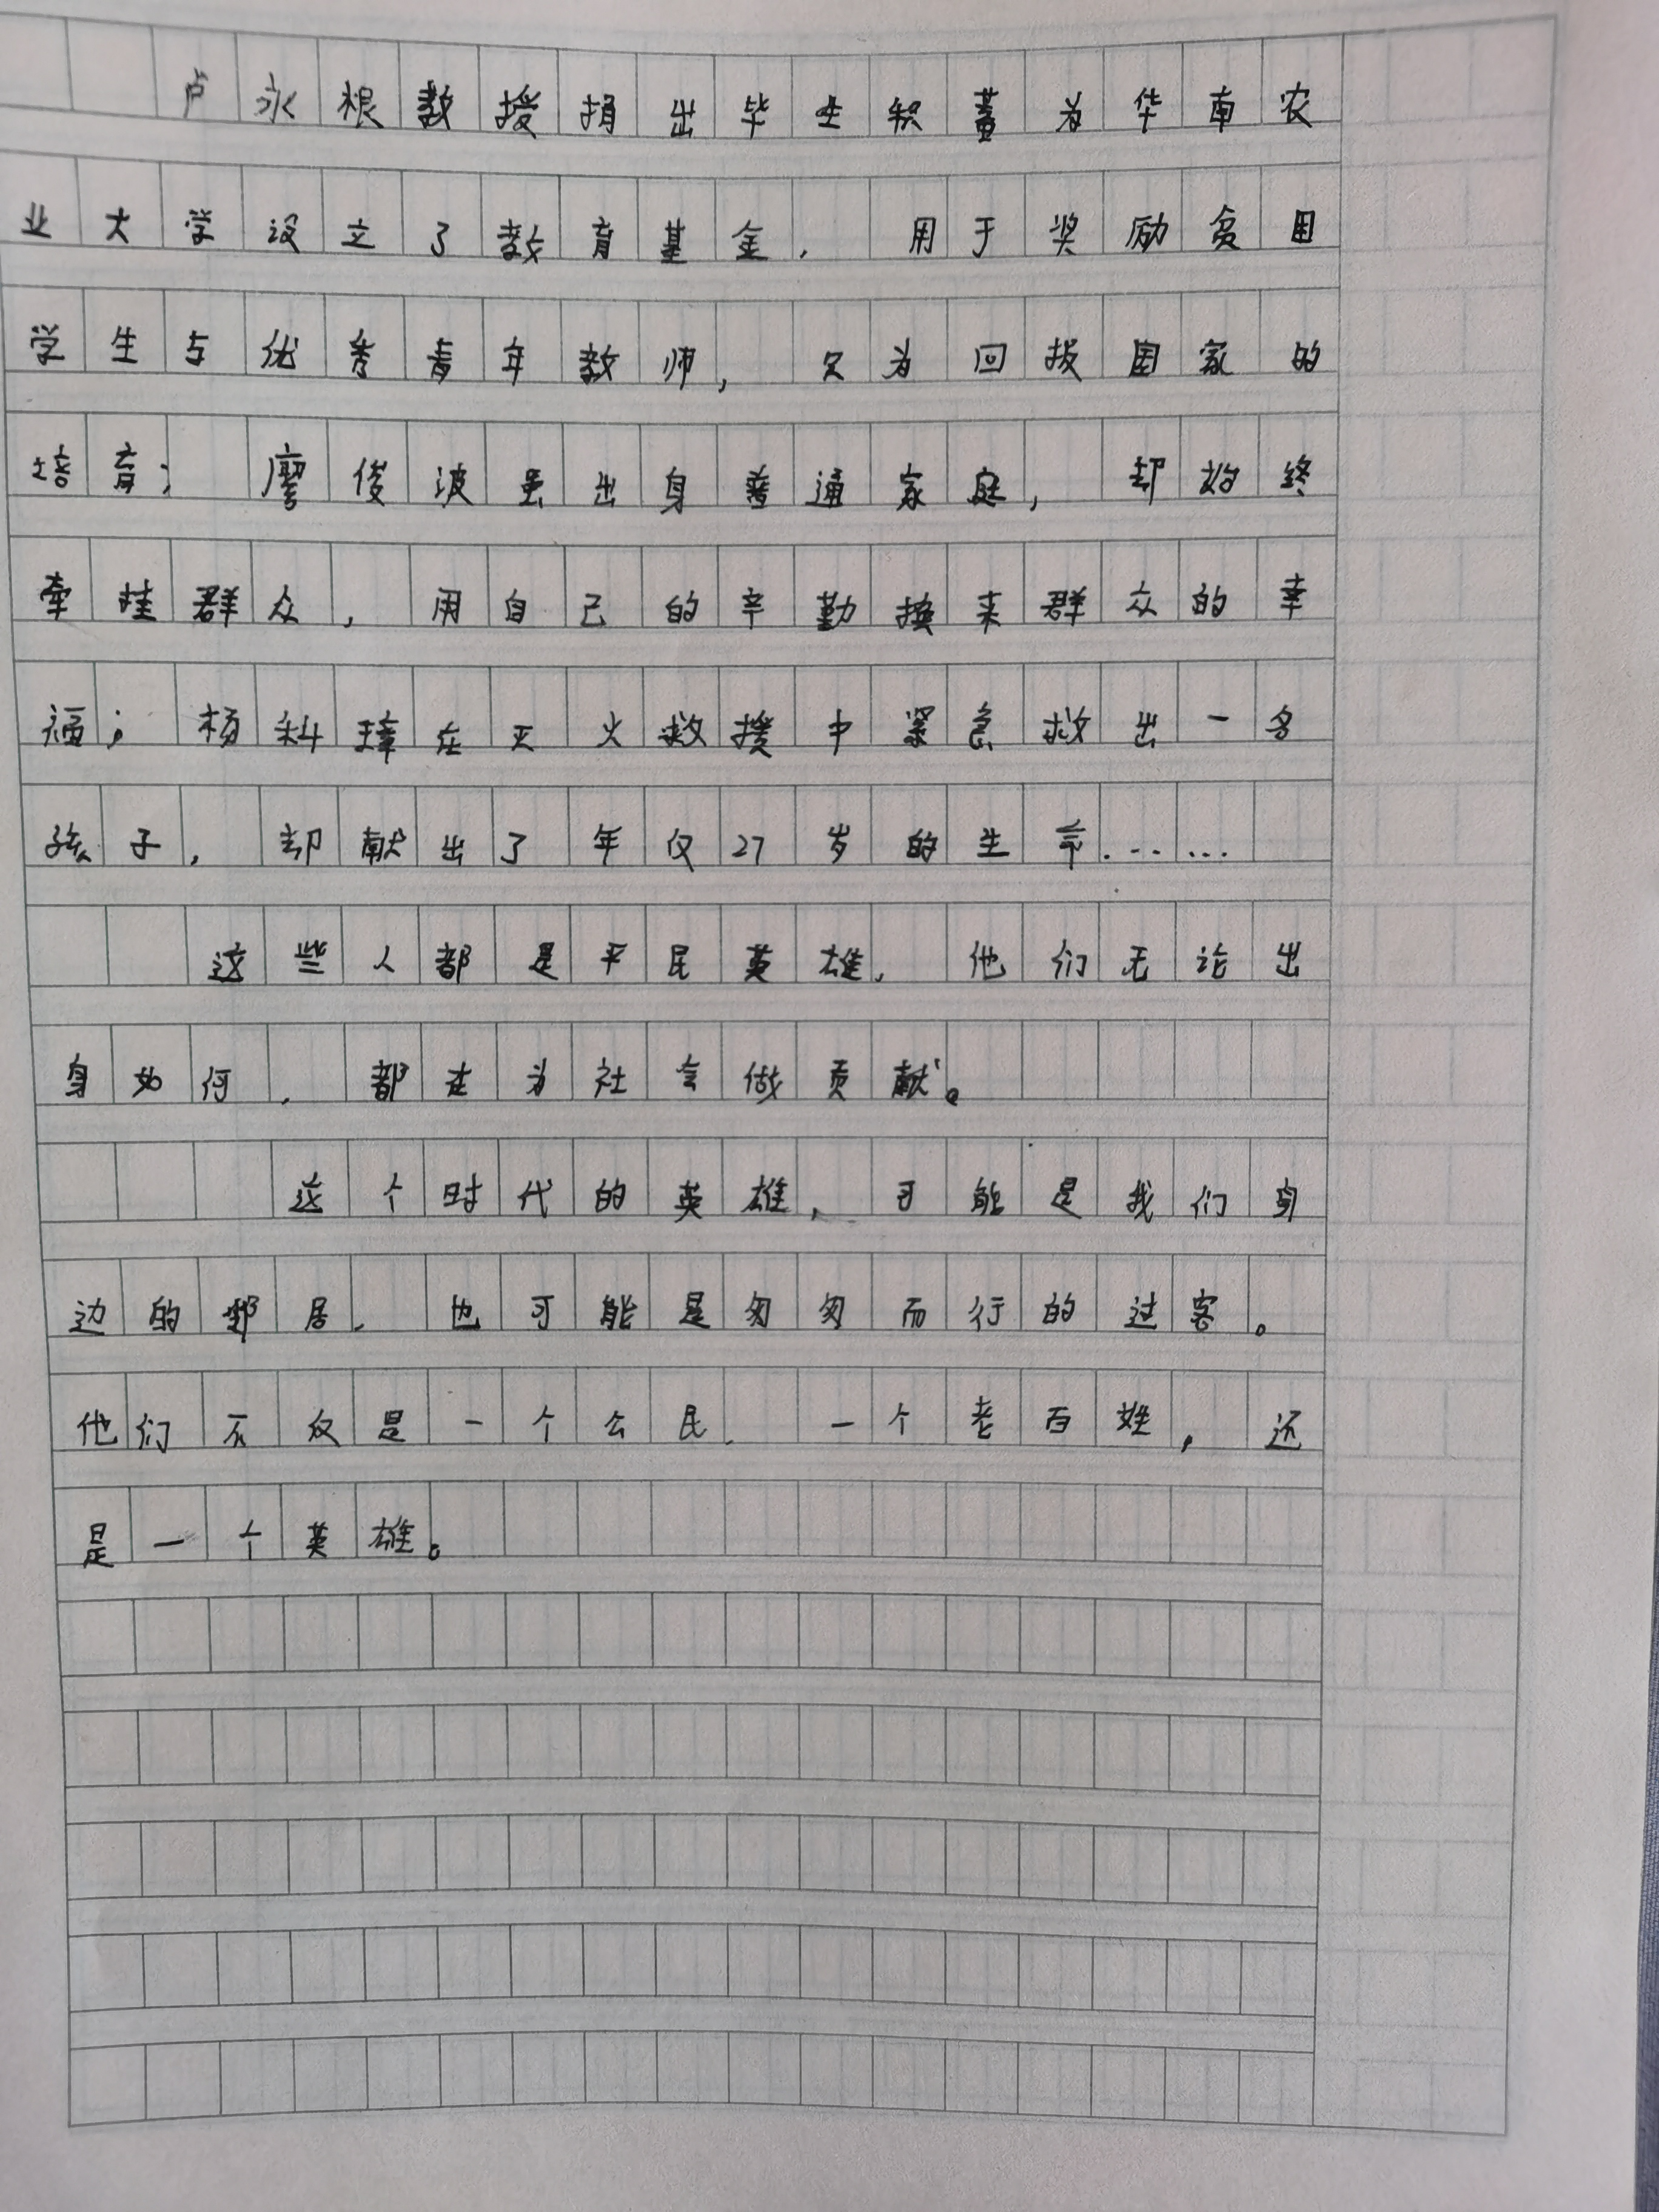 卢永根教授捐出毕生积蓄为华南农
业大学设立了教育基金，用于奖励贫困
学生与优秀青年教师，只为回报国家的
培育；廖俊波虽出身普通家庭，却始终
牵挂群众，用自己的辛勤换来群众的幸
福；杨科璋在灭火救援中紧急救出一名
孩子，却献出了年仅27岁的生命……
这些人都是平民英雄，他们无论出
身如何，都在为社会做贡献。
这个时代的英雄，可能是我们身
边的邻居，也可能是匆匆而行的过客。
他们不仅是一个公民，一个老百姓，还
是一个英雄。